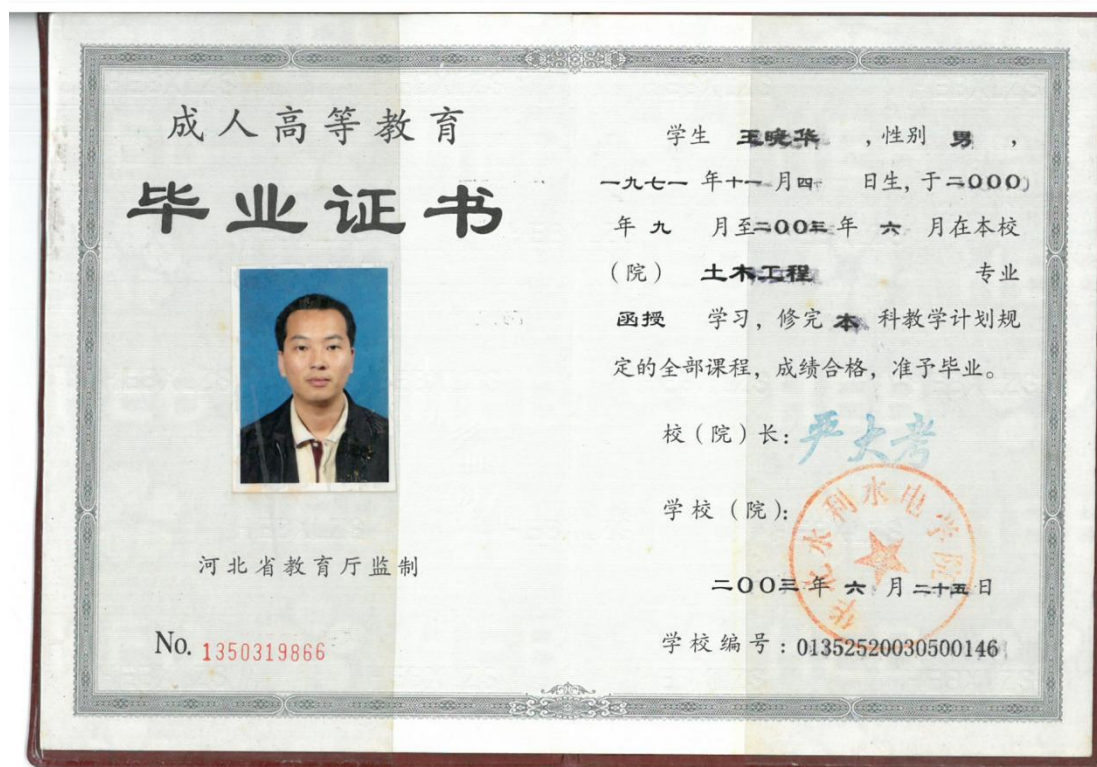 成人高等教育
毕业证书
河北省教育厅监制
No. 1350319866
学生 王晓华 ，性别 男 ，
一九七一 年十一月四 日生，于二〇〇〇
年 九 月至二〇〇三年 六 月在本校
（院） 土木工程 专业
函授 学习，修完 本 科教学计划规
定的全部课程，成绩合格，准予毕业。
校（院）长：严大考
学校（院）：
华北水利水电学院
二〇〇三年 六 月二十五日
学校编号：01352520030500146